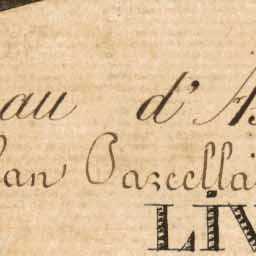 au d'As
lan Parcella
LIV